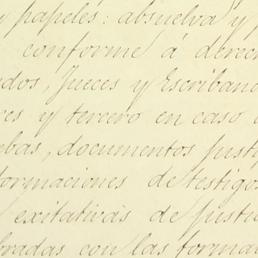 y papeles: absuelva y
conforme á derec
dos, Jueces y Escriban
es y tercero en caso
bas, documentos justi
formaciones de testigos
exitativas de Justi
bradas con las forma